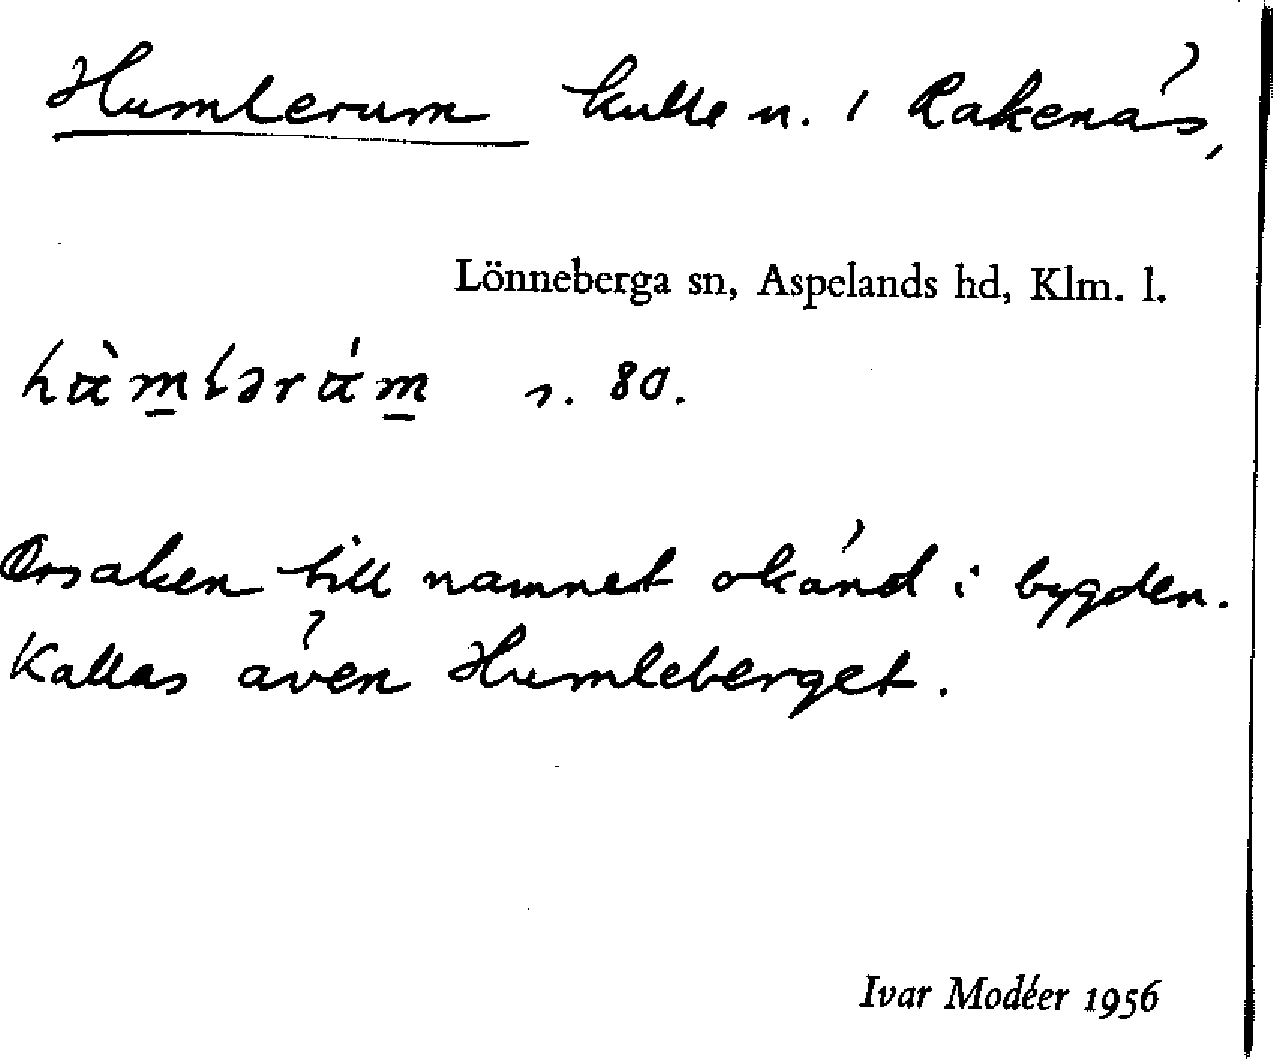 Humlerum kulle n. i Rakenäs,
Lönneberga sn, Aspelands hd, Klm. l.
s. 80.
Orsaken till namnet okänd i bygden.
Kallas även Humleberget.
Ivar Modéer 1956